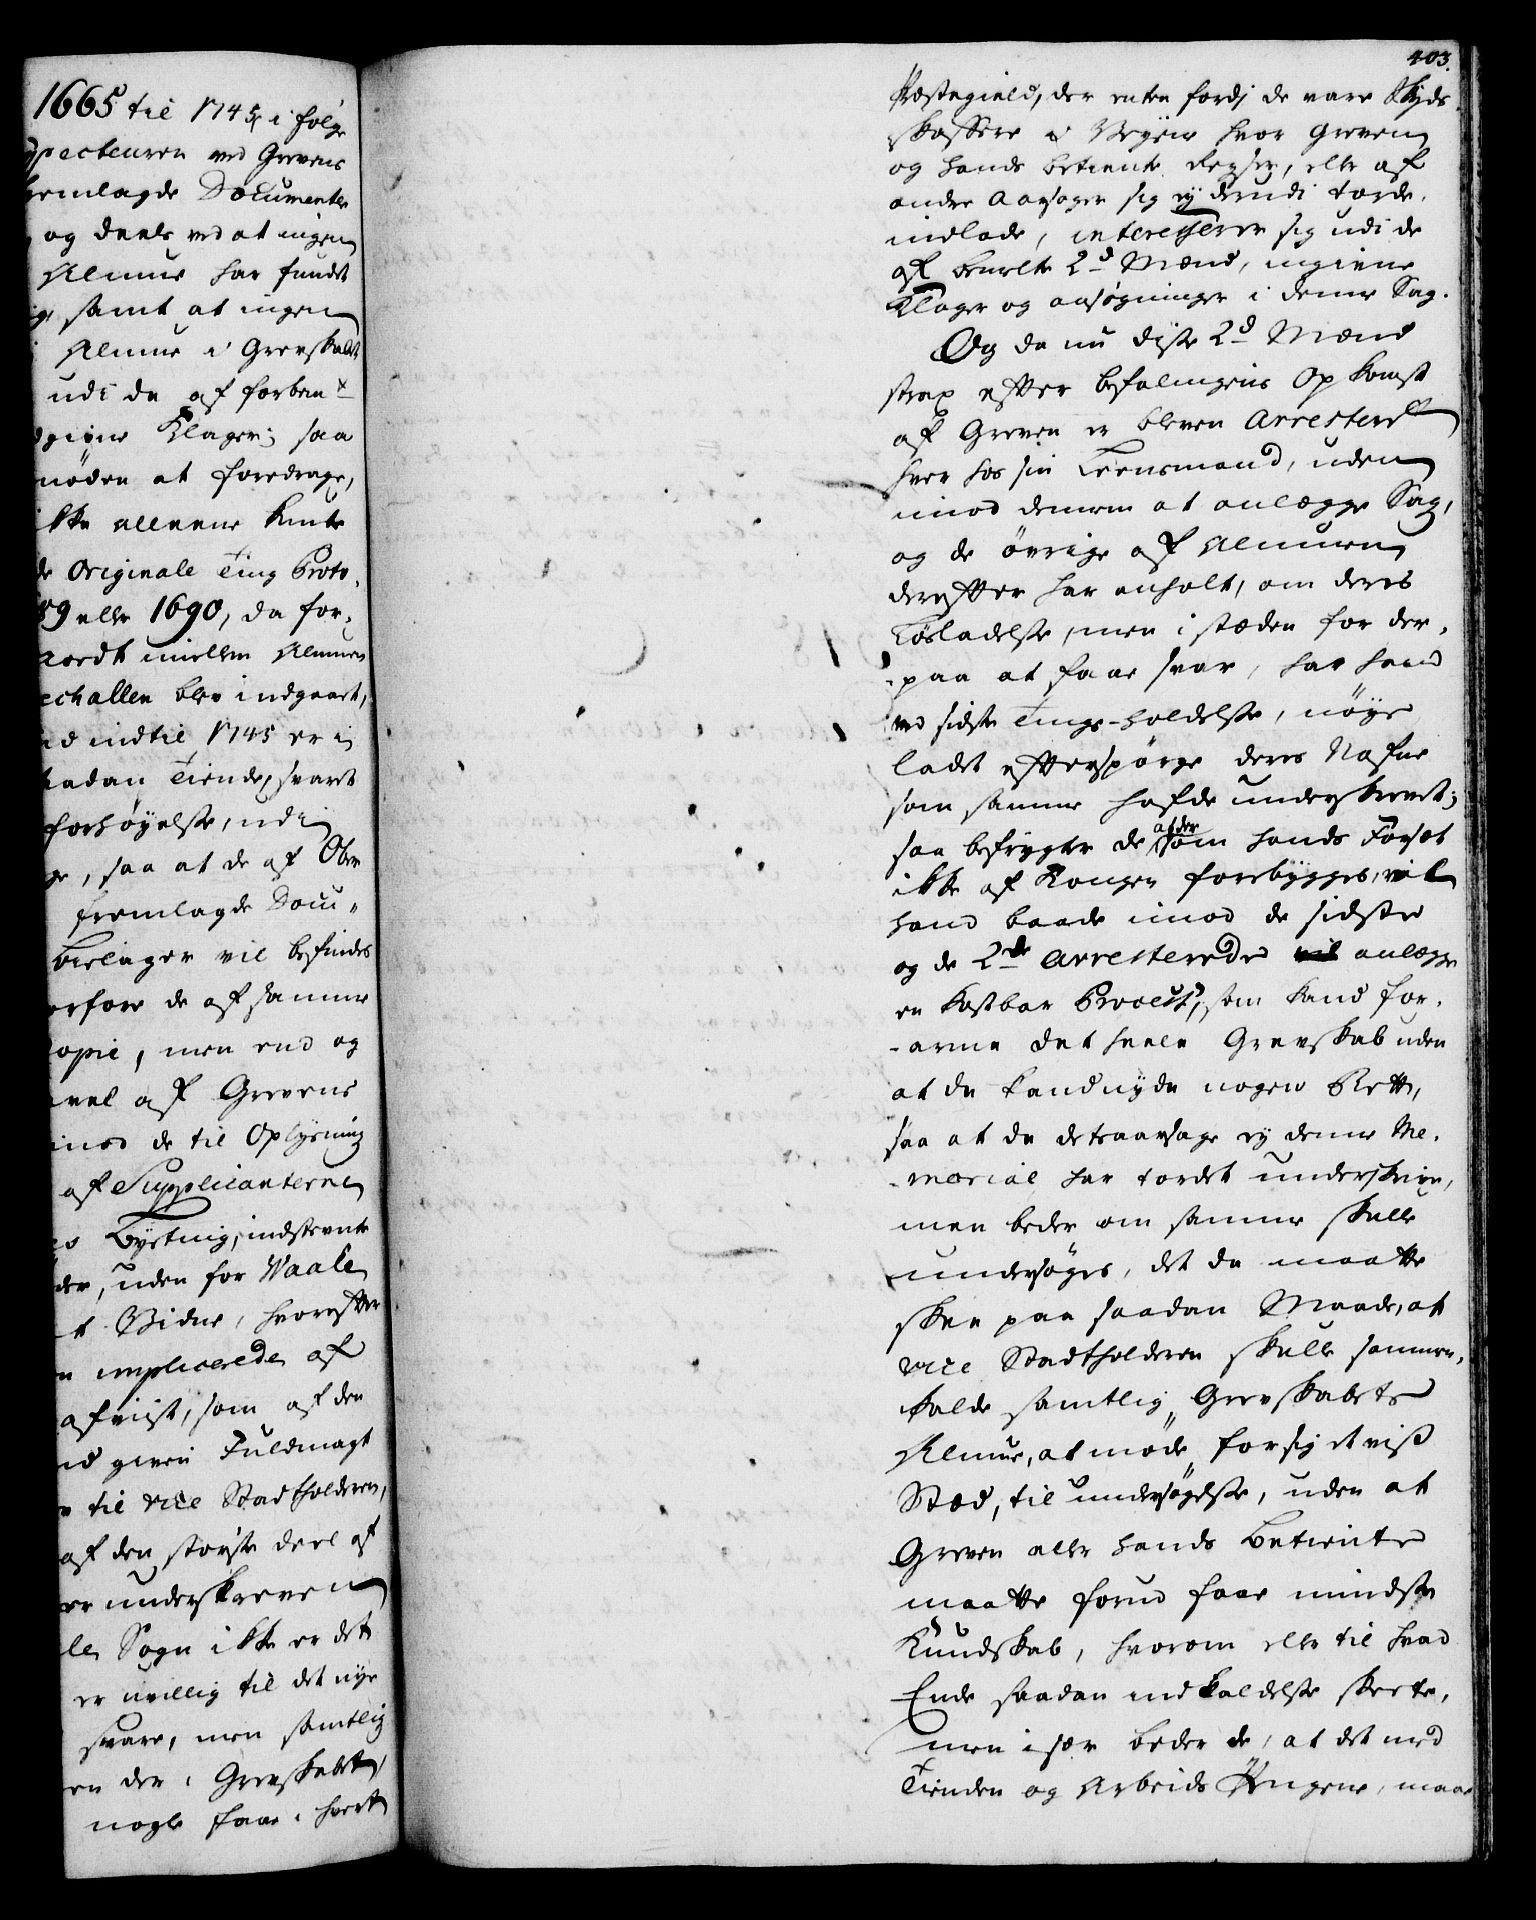 1665 til 1745, i følge
specteuren ved Grevens
fremlagde Documenter
og deels ved at ingen
Almue har fundet
samt at ingen
Almue i Grevskabet
udi de af forben
dgivne Klager; saa
nøden at foredrage,
ikke alleene
de Originale Ting Proto-
89 eller 1690, da for-
kordt imellem Almuen
echallen blev indgaaet,
indtil 1745 er
saadan Tiende, svaret
forhøyelse, udi
ge, saa at de af Ober
fremlagde Docu-
Berlager vil befindes
erfore de af samme
Copie, men end og
vel af Grevens
imod de til Oplysning
af Supplicanterne
Bye ting, indstevnte
der, uden for Waale
et Vidne, hvorefter
n implicerede af
afviist, som af den
given Fuldmagt
til vice Stadtholderen,
af den største deel af
er underskreven
le Sogn ikke er det
er uvillig til det nye
svare, men samtlig
en der i Grevskabet,
nogle faae i hvert
403.
Præstegield, der enten fordi de vare Skyds
skaffere i Veyene hvor Greven
og hands betiente Reyser, eller af
andre Aarsager sig ey derudi torde
indlade, interessere sig udi de
af benefte 2d Mænd, ingivne
Klager og ansøgninger i denne Sag.
Og da nu disse 2d Mænd
strax efter befalingens Opkomst
af Greven er bleven Arresteret
hver hos sin Leensmand, uden
imod dennem at anlegge Sag,
og de øvrige af Almuen
derefter har anholt, om deres
Løsladelse, men i stæden for der-
-paa at faae svar, har hand
ved sidste Tings-holdelse, nøye
ladet efterspørge deres Nafne
som samme hafde underskrevet;
saa befrygter de at der som hands Forsæt
ikke af Kongen forebygges, vil
hand baade imod de sidste
og de 2de Arresterede vil anlegge
en kostbar Process, som kand for-
-arme det heele Grevskab uden
at de kand nyde nogen Rett,
saa at de detsaarsage ey denne Me-
-morial har tordet underskrive,
men beder om samme skulle
undersøges, det da maatte
skee paa saadan Maade, at
vice Stadtholderen skulle sammen-
kalde samtlig Grevskabets
Almue, at møde for sig et vist
Stæd, til undersøgelse, uden at
Greven eller hands Betiente
maatte forud faae mindste
Kundskab, hvorom eller til hvad
Ende saadan indkaldelse skeete,
men især beder de, at det med
Tienden og Arbeids Pengene, maae